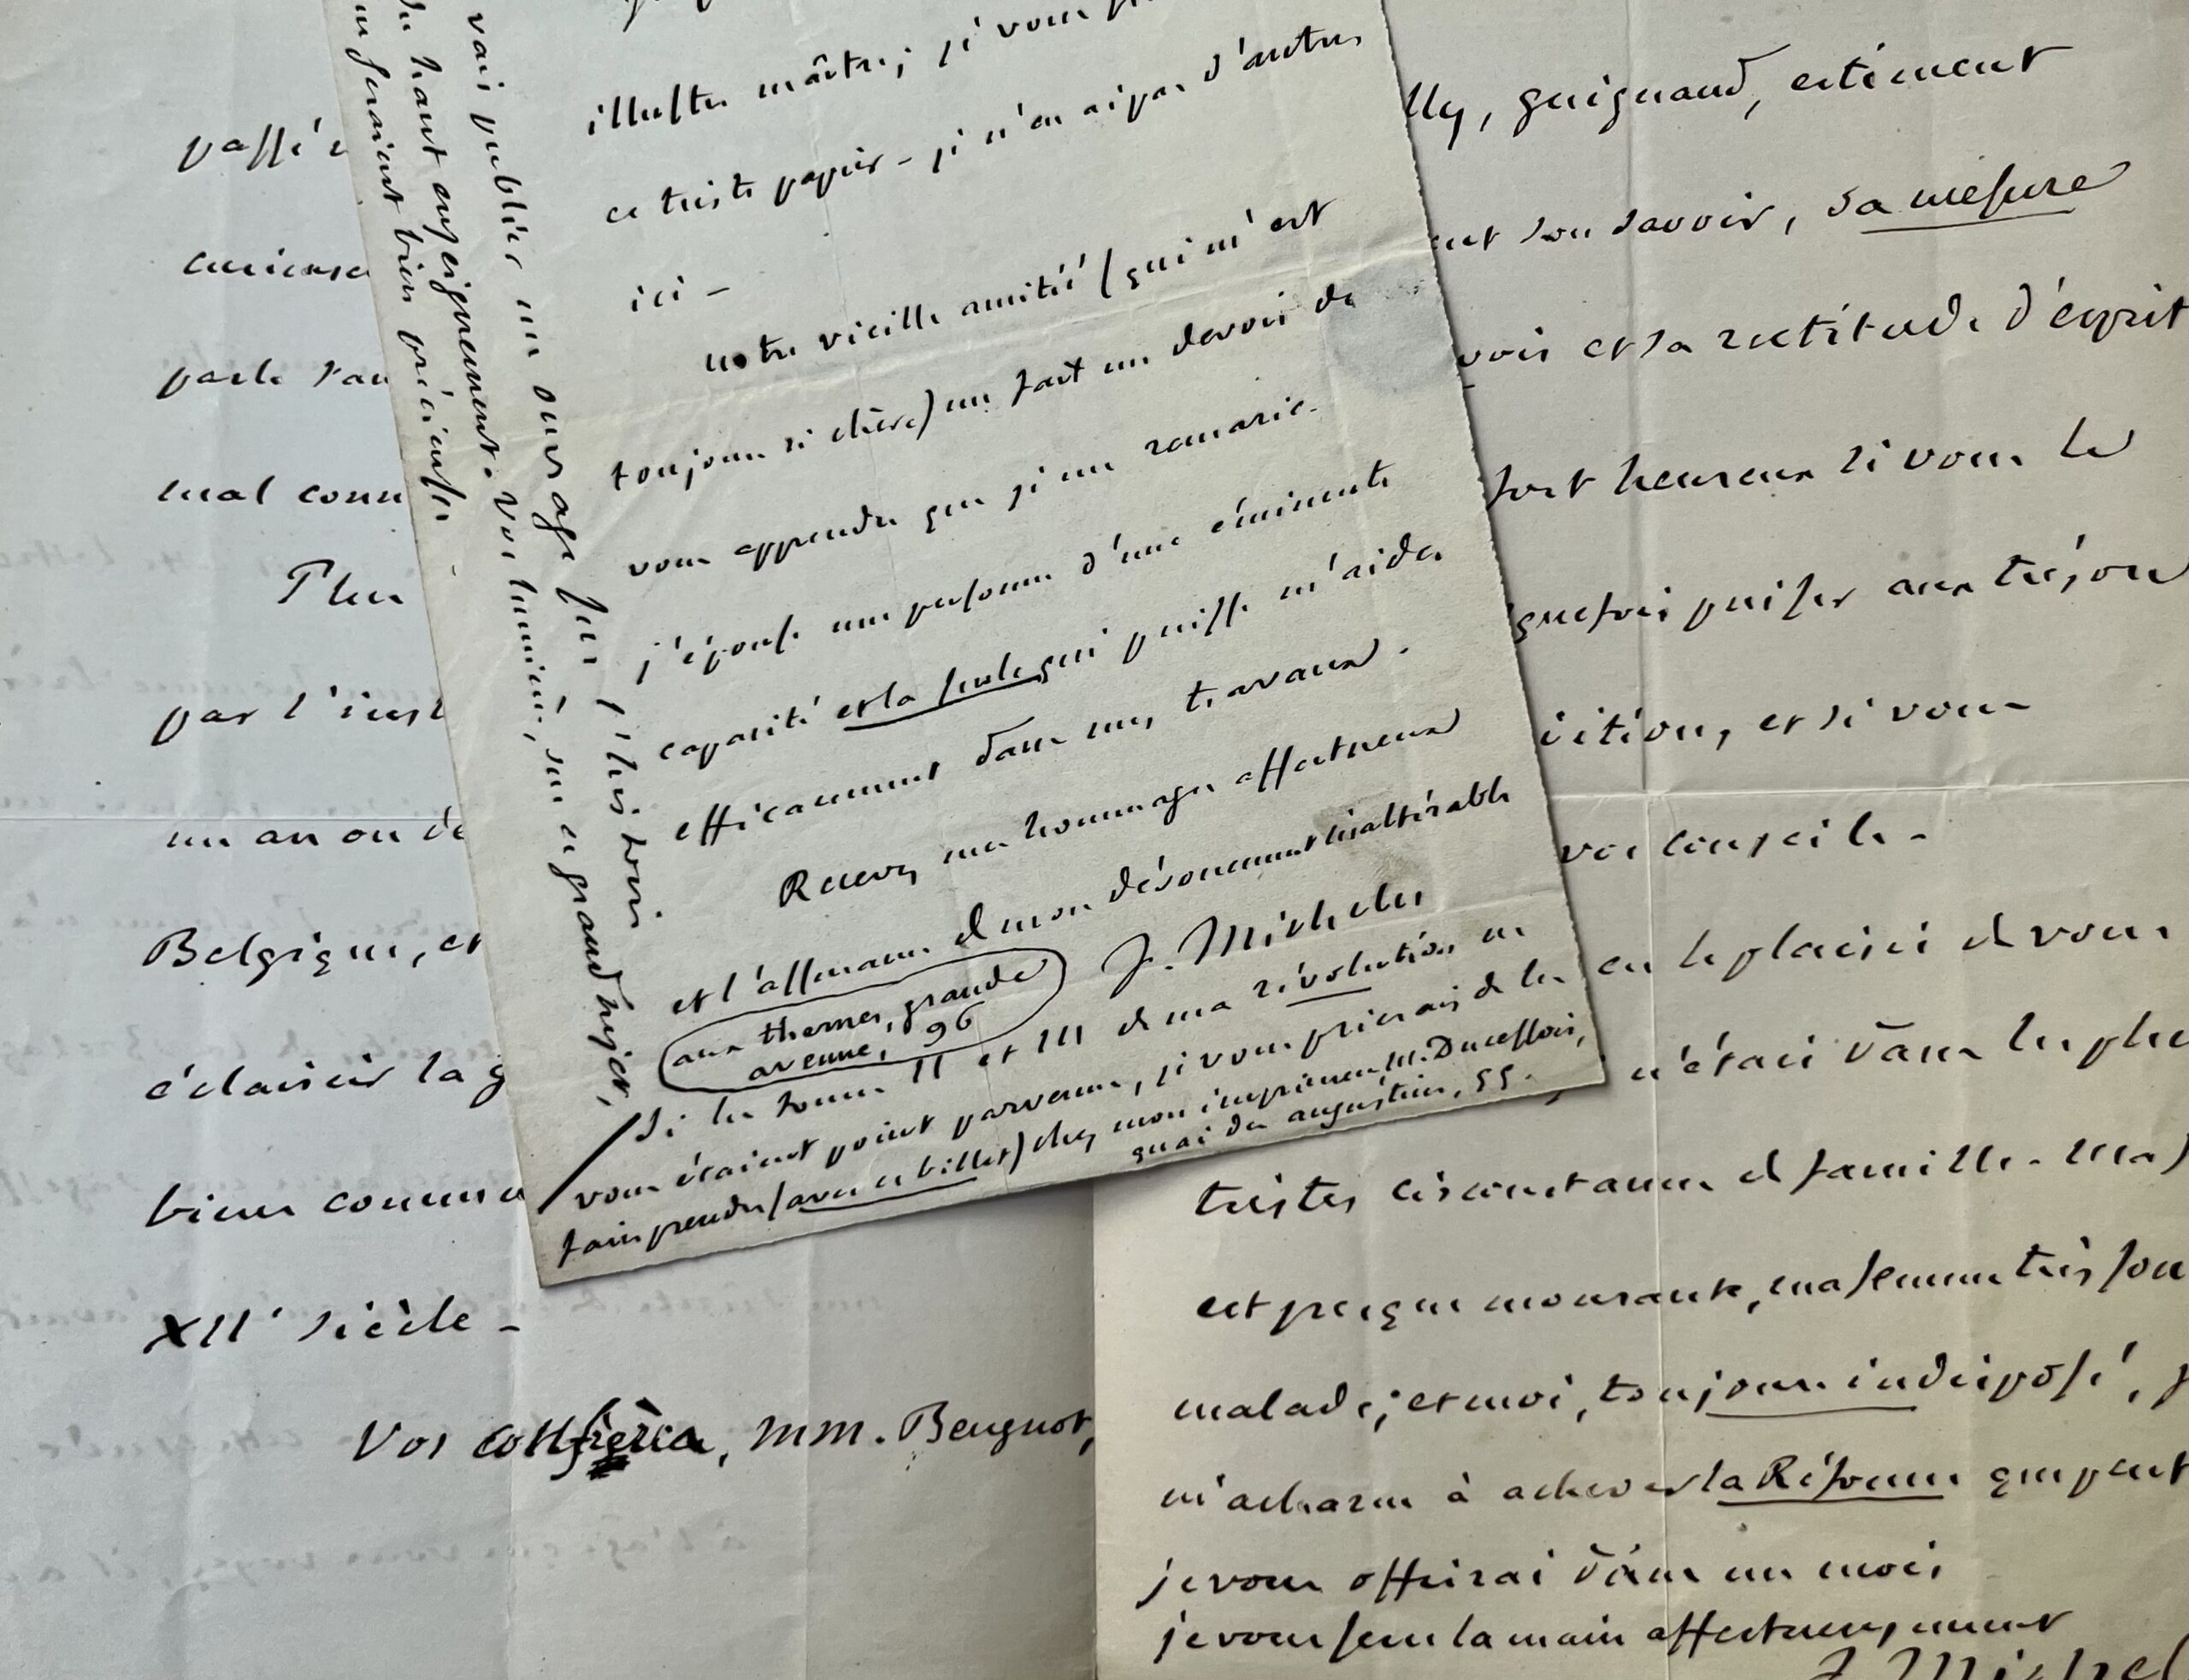 illustre maître; je vous
ce triste papier - je n'en ai pas d'autres
ici -
notre vieille amitié (qui m'est
toujours si chère) me fait un devoir de
vous apprendre que je me remarie.
j'épouse une personne d'une éminente
capacité et la seule qui puisse m'aider
efficacement dans mes travaux.
Recevez mes hommages affectueux
et l'assurance de mon dévouement inaltérable
J. Michelet
aux thernes, grande
avenue, 96
Si les tomes II et III de ma révolution ne
vous étaient point parvenus, je vous prierais de les
faire prendre (avec ce billet) chez mon imprimeur M. Ducessois,
quai des augustins, 55.
vais publier un ouvrage sur l'histoire
du haut enseignement. vos lumières, sur ce grand sujet,
me seraient bien précieuses
passé
curieuse
parle san
mal conn
Plus
par l'inst
un an ou de
Belgique, et
éclaircir la g
bien connu
XIIe siècle -
Vos confrères, MM. Beugnot,
lly, guignaud, estiment
ent son savoir, sa mesure
voir et sa rectitude d'esprit
fort heureux si vous le
quefois puiser aux trésors
ition, et si vous
vos conseils -
eu le plaisir de vous
n'étais dans les plus
tristes circonstances de famille. ma
est presque mourante, ma femme très sou
malade; et moi, toujours indisposé, j
m'acharne à achever la Réforme que peut
je vous offrirai dans un mois
je vous serre la main affectueusement
J. Michel